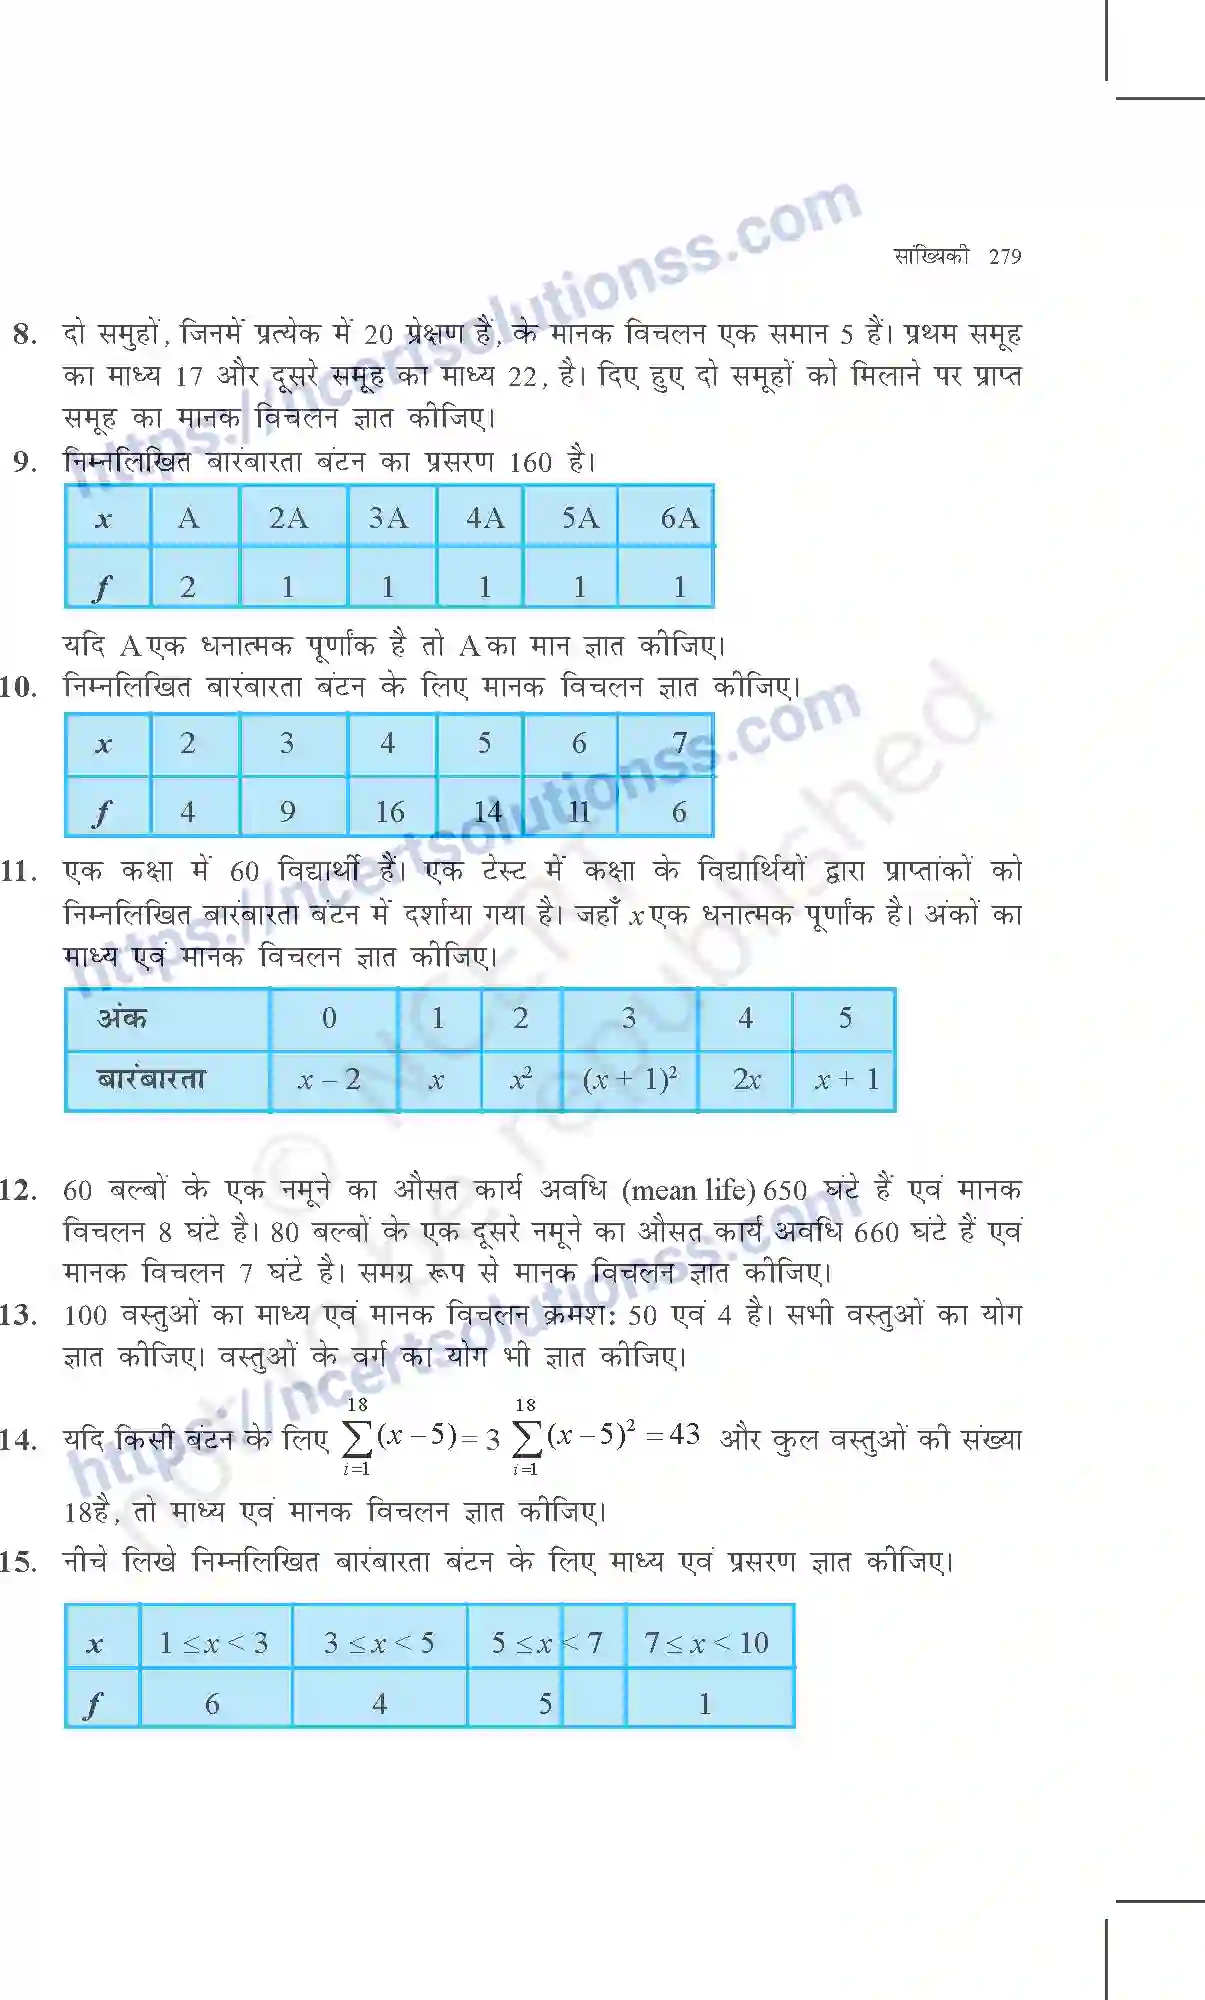 सांख्यिकी 279
8. दो समुहों, जिनमें प्रत्येक में 20 प्रेक्षण हैं, के मानक विचलन एक समान 5 हैं। प्रथम समूह
का माध्य 17 और दूसरे समूह का माध्य 22, है। दिए हुए दो समूहों को मिलाने पर प्राप्त
समूह का मानक विचलन ज्ञात कीजिए।
9. निम्नलिखित बारंबारता बंटन का प्रसरण 160 है।
x A 2A 3A 4A 5A 6A
f 2 1 1 1 1 1
यदि A एक धनात्मक पूर्णांक है तो A का मान ज्ञात कीजिए।
10. निम्नलिखित बारंबारता बंटन के लिए मानक विचलन ज्ञात कीजिए।
x 2 3 4 5 6 7
f 4 9 16 14 11 6
11. एक कक्षा में 60 विद्यार्थी हैं। एक टेस्ट में कक्षा के विद्यार्थियों द्वारा प्राप्तांकों को
निम्नलिखित बारंबारता बंटन में दर्शाया गया है। जहाँ x एक धनात्मक पूर्णांक है। अंकों का
माध्य एवं मानक विचलन ज्ञात कीजिए।
अंक 0 1 2 3 4 5
बारंबारता x – 2 x x² (x + 1)² 2x x + 1
12. 60 बल्बों के एक नमूने का औसत कार्य अवधि (mean life) 650 घंटे हैं एवं मानक
विचलन 8 घंटे है। 80 बल्बों के एक दूसरे नमूने का औसत कार्य अवधि 660 घंटे हैं एवं
मानक विचलन 7 घंटे है। समग्र रूप से मानक विचलन ज्ञात कीजिए।
13. 100 वस्तुओं का माध्य एवं मानक विचलन क्रमश: 50 एवं 4 है। सभी वस्तुओं का योग
ज्ञात कीजिए। वस्तुओं के वर्ग का योग भी ज्ञात कीजिए।
14. यदि किसी बंटन के लिए \sum_{i=1}^{18}(x – 5) = 3 \sum_{i=1}^{18}(x – 5)² = 43 और कुल वस्तुओं की संख्या
18है, तो माध्य एवं मानक विचलन ज्ञात कीजिए।
15. नीचे लिखे निम्नलिखित बारंबारता बंटन के लिए माध्य एवं प्रसरण ज्ञात कीजिए।
x 1 ≤ x < 3 3 ≤ x < 5 5 ≤ x < 7 7 ≤ x < 10
f 6 4 5 1
https://ncertsolutionss.com
https://ncertsolutionss.com
https://ncertsolutionss.com
© NCERT
not to be republished